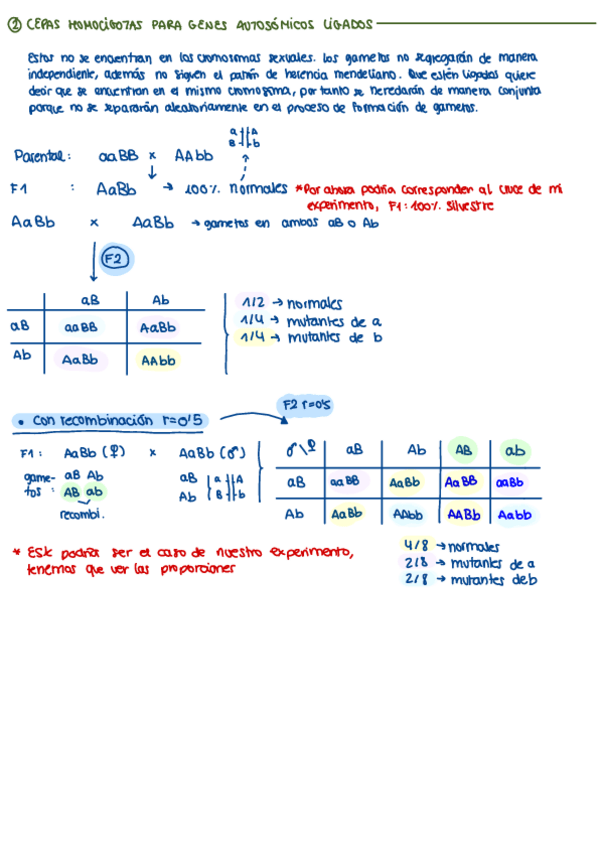 ② CEPAS HOMOCIGOTAS PARA GENES AUTOSÓMICOS LIGADOS
Estos no se encuentran en los cromosomas sexuales. Los gametos no segregarán de manera
independiente, además no siguen el patrón de herencia mendeliano. Que estén ligados quiere
decir que se encuentran en el mismo cromosoma, por tanto se heredarán de manera conjunta
porque no se separarán aleatoriamente en el proceso de formación de gametos.
a A
B b
Parental: aaBB x AAbb
F1 : AaBb → 100% normales *Por ahora podría corresponder al cruce de mi
experimento, F1: 100% silvestre
AaBb x AaBb → gametos en ambos aB o Ab
F2
aB Ab
aB aaBB AaBb
Ab AaBb AAbb
1/2 → normales
1/4 → mutantes de a
1/4 → mutantes de b
• Con recombinación r=0'5
F2 r=0'5
F1: AaBb (♀) x AaBb (♂)
game- aB Ab
tos: AB ab
recombi.
aB
Ab
a A
B b
♂\♀ aB Ab AB ab
aB aaBB AaBb AaBB aaBb
Ab AaBb AAbb AABb Aabb
* Este podría ser el caso de nuestro experimento,
tenemos que ver las proporciones
4/8 → normales
2/8 → mutantes de a
2/8 → mutantes de b